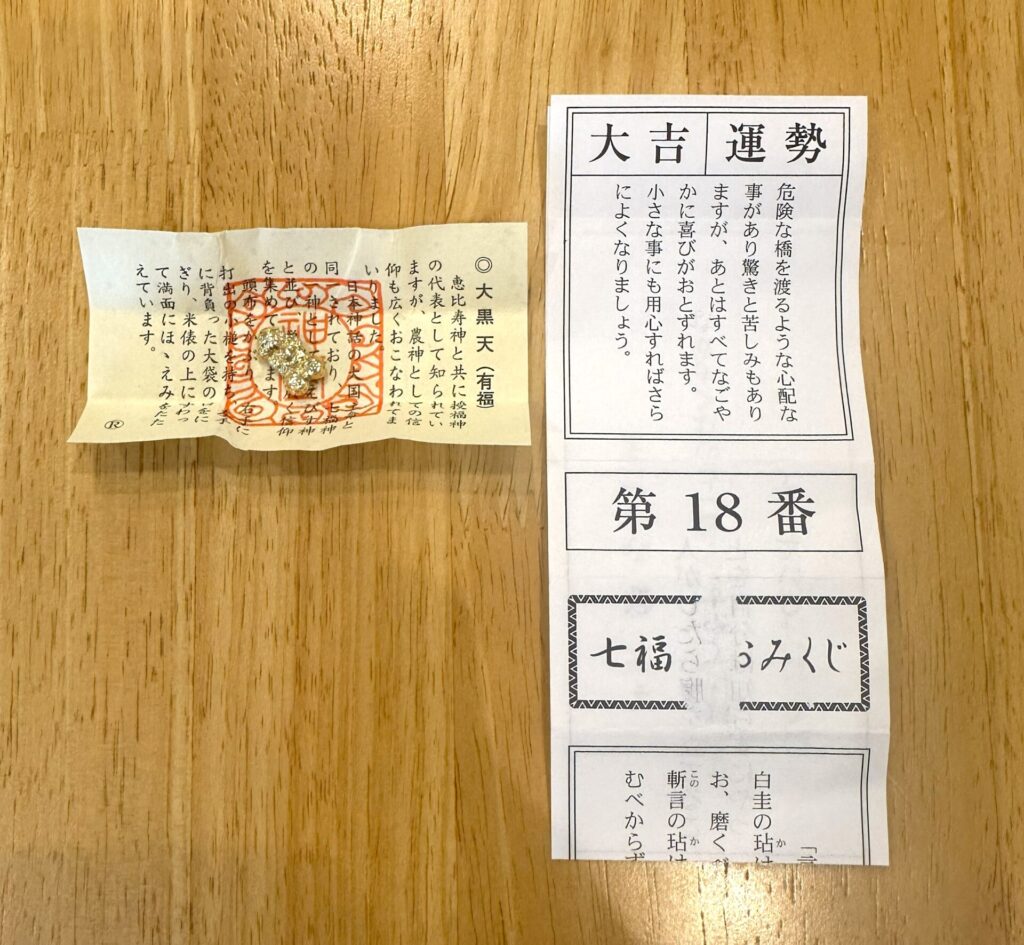 ◎大黒天（有福）
恵比寿神と共に授福神
の代表として知られてい
ますが、農神としての信
仰も広くおこなわれてま
いりました。
日本神話の大国
同 されており、七福神
の 神として
と並び 信仰
を集めて ます
頭布をかぶり、右手に
打出の小槌を持ち、
に背負った大袋の
ぎり、米俵の上に
て満面にほゝえみをたた
えています。
R
大吉 運勢
危険な橋を渡るような心配な
事があり驚きと苦しみもあり
ますが、あとはすべてなごや
かに喜びがおとずれます。
小さな事にも用心すればさら
によくなりましょう。
第18番
七福 みくじ
「言
白圭の玷は
お、磨くべ
斯言の玷は
むべからず